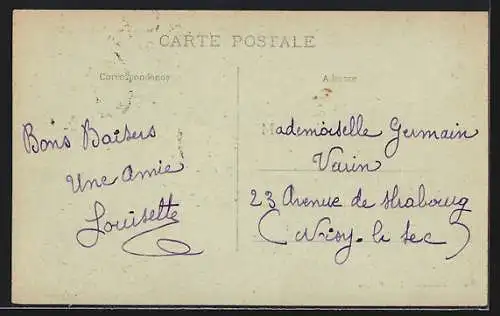 CARTE POSTALE
Correspondance
Adresse
Bons Baisers
Une Amie
Louisette
Mademoiselle Germain
Varin
23 Avenue de strabourg
(Noisy-le Sec)